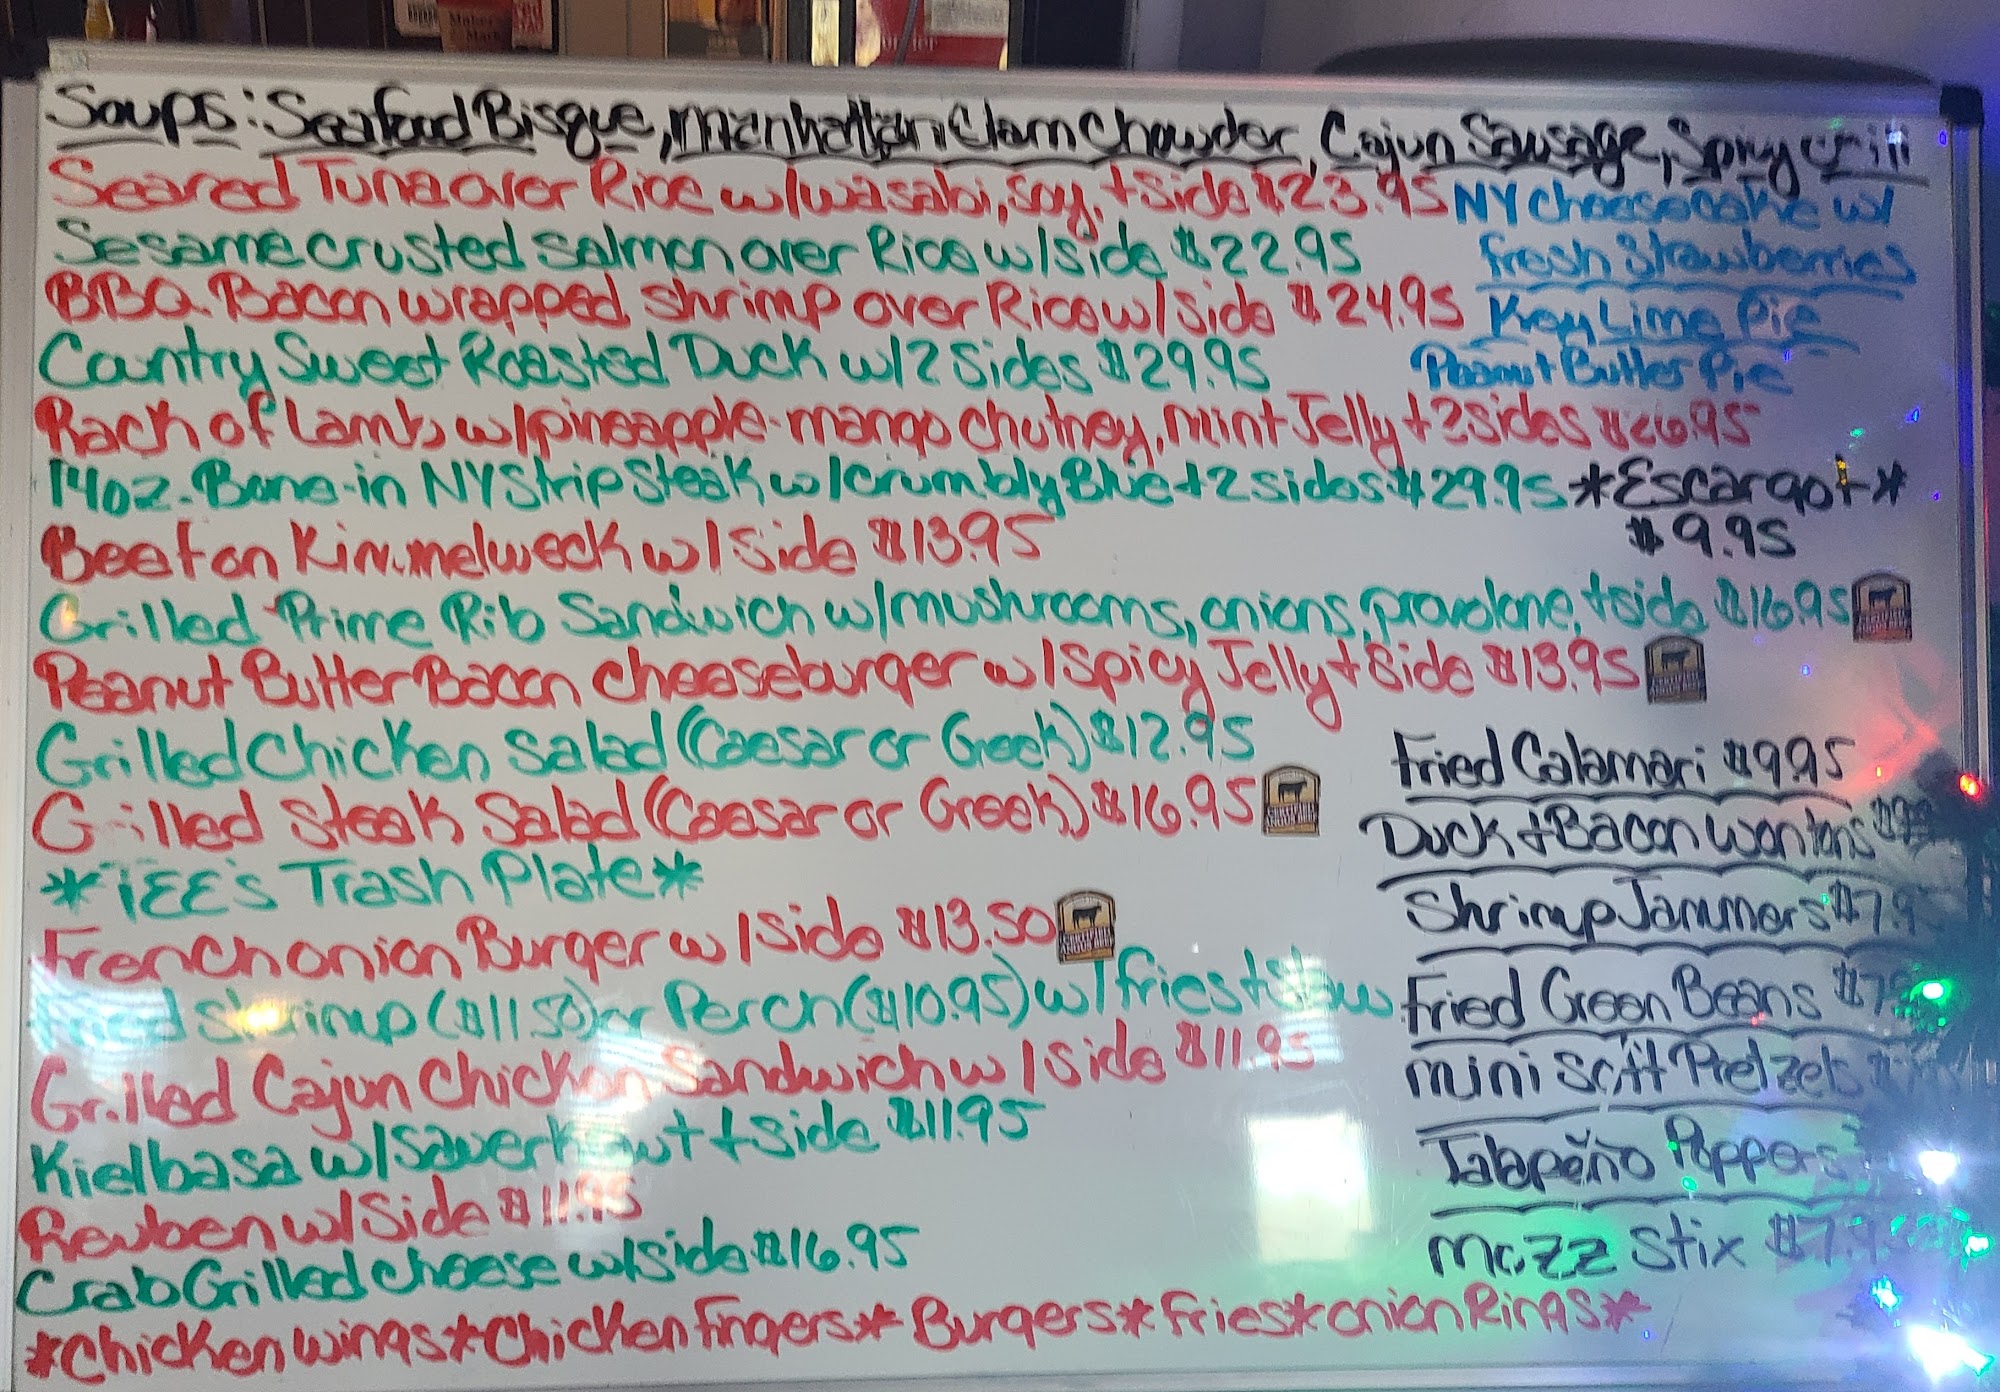 Soups: Seafood Bisque, Manhattan Clam Chowder, Cajun Sausage, Spicy Chili
Seared Tuna over Rice w/wasabi, soy, + side $23.95
Sesame crusted Salmon over Rice w/side $22.95
BBQ. Bacon wrapped shrimp over Rice w/side $24.95
Country Sweet Roasted Duck w/2 sides $29.95
Rack of Lamb w/pineapple-mango chutney, mint Jelly + 2 sides $26.95
14oz. Bone-in NY Strip Steak w/crumbly Blue + 2 sides $29.95
Beef on Kimmelweck w/side $13.95
Grilled Prime Rib Sandwich w/mushrooms, onions, provolone, + side $16.95
Peanut Butter Bacon cheeseburger w/Spicy Jelly + side $13.95
Grilled Chicken Salad (Caesar or Greek) $12.95
Grilled Steak Salad (Caesar or Greek) $16.95
*TEE's Trash Plate*
French onion Burger w/side $13.50
Fried Shrimp ($11.50) or Perch ($10.95) w/fries + Slaw
Grilled Cajun Chicken Sandwich w/side $11.95
Kielbasa w/Sauerkraut + side $11.95
Reuben w/side $11.95
Crab Grilled cheese w/side $16.95
*Chicken wings*Chicken Fingers*Burgers*Fries*onion Rings*
NY Cheesecake w/
fresh Strawberries
Key Lime Pie
Peanut Butter Pie
*Escargot*
$9.95
Fried Calamari $9.95
Duck + Bacon Wontons
Shrimp Jammers
Fried Green Beans
mini Soft Pretzels
Jalapeño Poppers
Mozz Stix